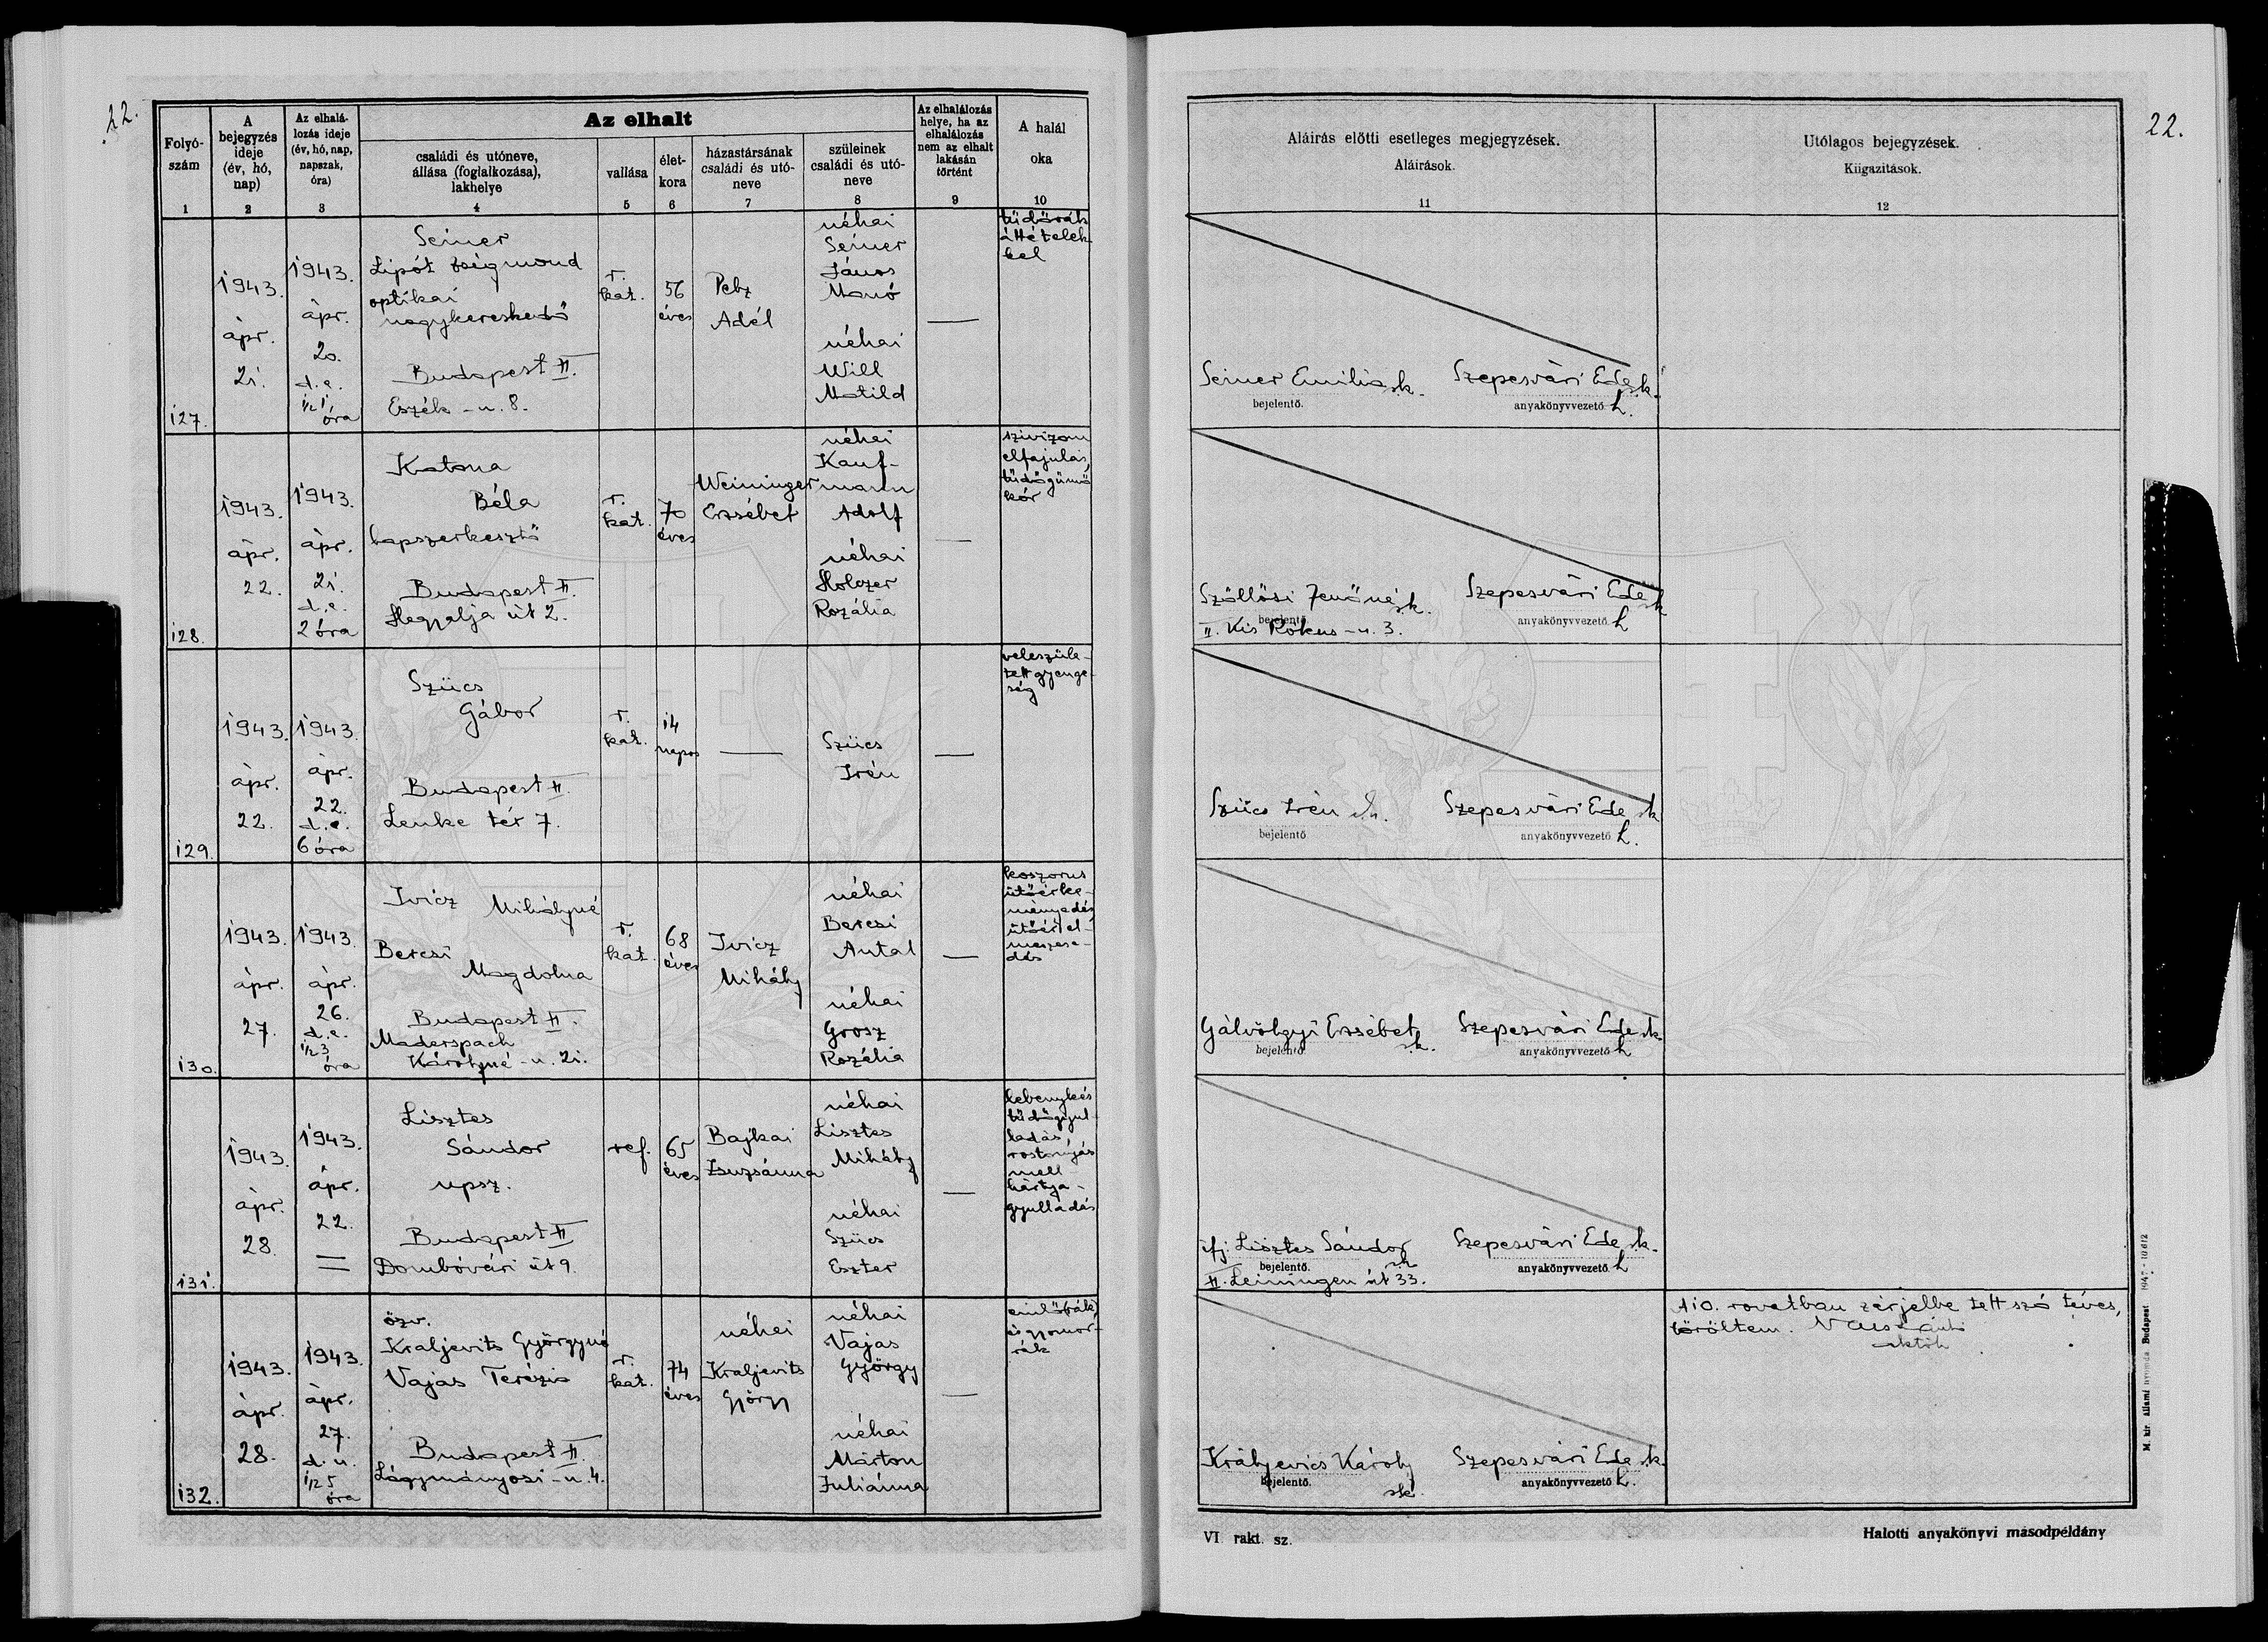 22.
Folyó-
szám
1
A
bejegyzés
ideje
(év, hó,
nap)
2
Az elhalá-
lozás ideje
(év, hó, nap,
napszak,
óra)
3
Az elhalt
családi és utóneve,
állása (foglalkozása),
lakhelye
4
vallása
5
élet-
kora
6
házastársának
családi és utó-
neve
7
szüleinek
családi és utó-
neve
8
Az elhalálozás
helye, ha az
elhalálozás
nem az elhalt
lakásán
történt
9
A halál
oka
10
127.
1943.
ápr.
21.
1943.
ápr.
20.
d.e.
1/2 1
óra
Seiner
Lipót Zsigmond
optikai
nagykereskedő
Budapest II.
Eszék-u. 8.
r.
kat.
56
éves
Adél
néhai
Seiner
János
Manó
néhai
Will
Matild
—
tüdőrák
áttételek-
kel
128.
1943.
ápr.
22.
1943.
ápr.
21.
d.e.
2 óra
Katona
Béla
lapszerkesztő
Budapest II.
Hegyalja út 2.
r.
kat.
70
éves
Weininger
Erzsébet
néhai
Kauf-
mann
Adolf
néhai
Holczer
Rozália
—
szívizom
elfajulás,
tüdőgümő
kór
129.
1943.
ápr.
22.
1943.
ápr.
22.
d.e.
6 óra
Szücs
Gábor
Budapest II.
Lenke tér 7.
r.
kat.
14
napos
—
Szücs
Irén
—
veleszüle-
tett gyenge-
ség
130.
1943.
ápr.
27.
1943.
ápr.
26.
d.e.
1/2 3
óra
Ivicz Mihályné
Bercsi
Magdolna
Budapest II.
Maderspach
Károlyné-u. 21.
r.
kat.
68
éves
Ivicz
Mihály
néhai
Bercsi
Antal
néhai
Grosz
Rozália
—
koszorus
ütőérke-
ményedés,
ütőér el-
meszese-
dés
131.
1943.
ápr.
28.
1943.
ápr.
22.
=
Lisztes
Sándor
npsz.
Budapest II
Dombóvári út 9.
ref.
65
éves
Bajkai
Zsuzsánna
néhai
Lisztes
Mihály
néhai
Szücs
Eszter
—
lebenykés
tüdőgyul-
ladás,
rostonyás
mell-
hártya-
gyulladás
132.
1943.
ápr.
28.
1943.
ápr.
27.
d.u.
1/2 5
óra
özv.
Kraljevits Györgyné
Vajas Terézia
Budapest II.
Lágymányosi-u. 4.
r.
kat.
74
éves
néhai
Kraljevits
György
néhai
Vajas
György
néhai
Márton
Juliánna
—
emlőrák,
és gyomor-
rák
22.
Aláírás előtti esetleges megjegyzések.
Aláírások.
11
Utólagos bejegyzések.
Kiigazítások.
12
Seiner Emilia s.k. Szepesvári Ede s.k.
bejelentő. anyakönyvvezető h.
Szőllősi Jenőné s.k. Szepesvári Ede s.k.
bejelentő. anyakönyvvezető h
II. Kis Rókus-u. 3.
Szücs Irén s.k. Szepesvári Ede s.k.
bejelentő anyakönyvvezető h.
Gálvölgyi Erzsébet s.k. Szepesvári Ede s.k.
bejelentő. anyakönyvvezető h
ifj. Lisztes Sándor s.k. Szepesvári Ede s.k.
bejelentő. anyakönyvvezető. h
II. Leiningen út 33.
A 10. rovatban zárjelbe tett szó téves,
töröltem.
Krályevics Károly s.k. Szepesvári Ede s.k.
bejelentő. anyakönyvvezető h.
VI. rakt. sz.
Halotti anyakönyvi másodpéldány
M. kir. állami nyomda Budapest